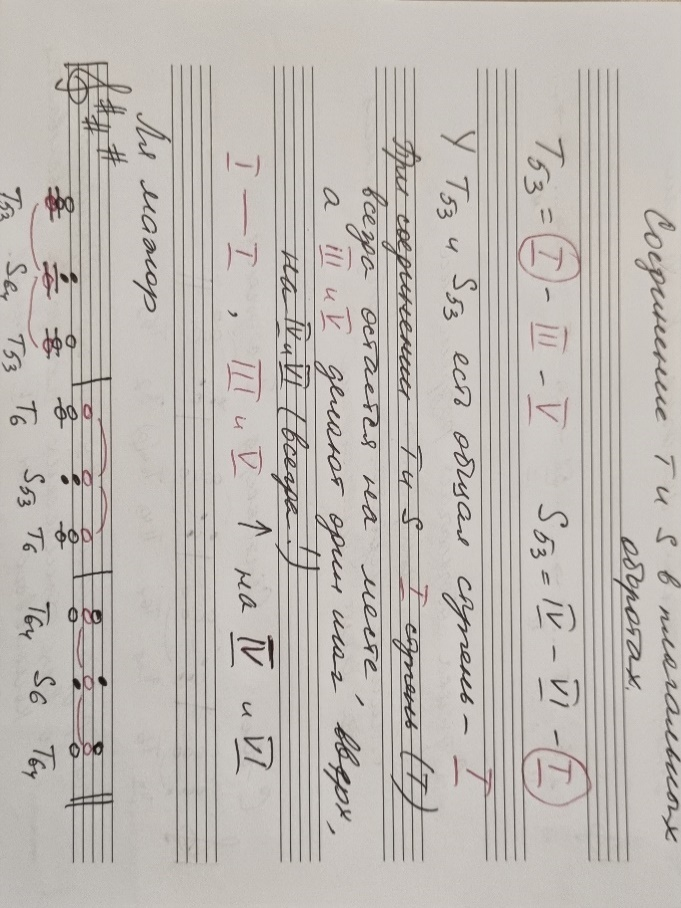 Соединение T и S в плагальных
оборотах.
T53 = I - III - V S53 = IV - VI - I
У T53 и S53 есть общая ступень - I
При соединении T и S I ступень (T)
всегда остаётся на месте,
а III и V делают один шаг вверх,
на IV и VI (всегда!)
I — I, III и V ↑ на IV и VI
Ля мажор
T53 S64 T53 T6 S53 T6 T64 S6 T64